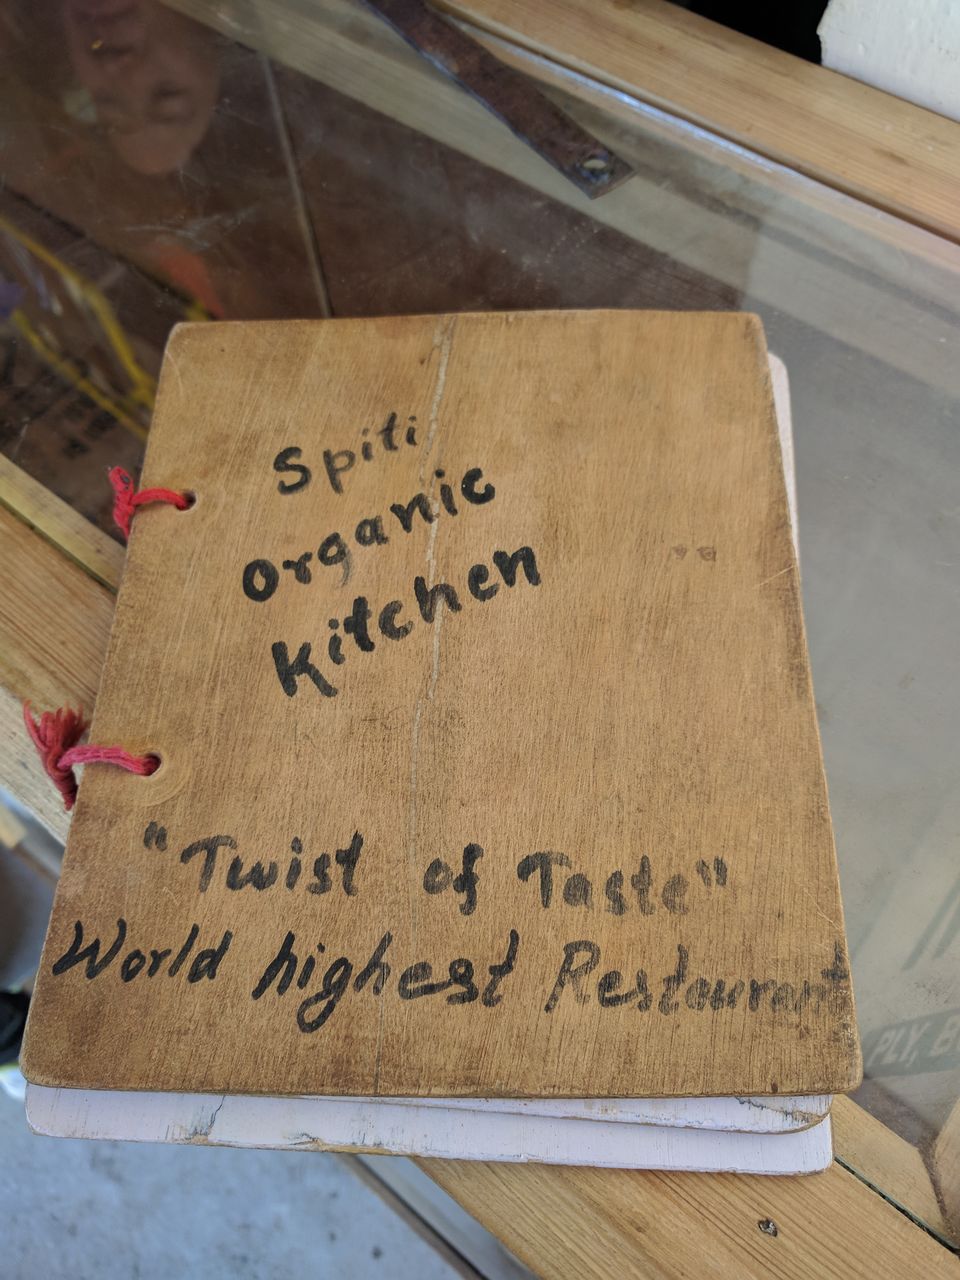 Spiti
Organic
Kitchen
"Twist of Taste"
World highest Restaurant
PLY, B